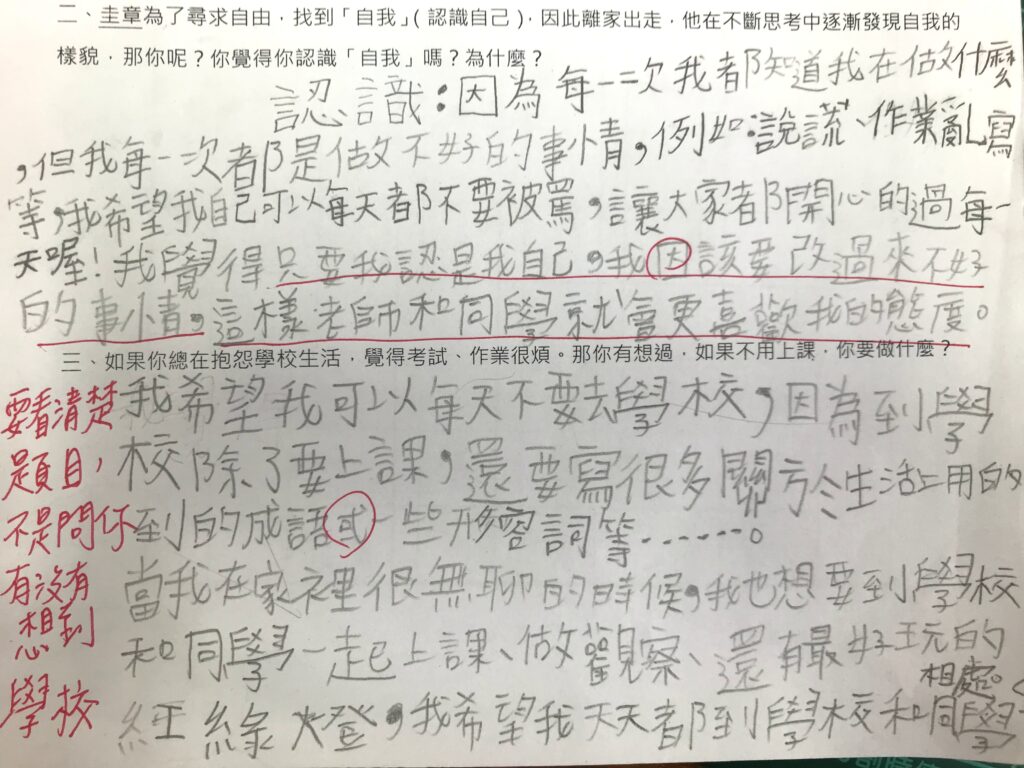 二、圭章為了尋求自由，找到「自我」（認識自己），因此離家出走，他在不斷思考中逐漸發現自我的
樣貌，那你呢？你覺得你認識「自我」嗎？為什麼？
認識：因為每一次我都知道我在做什麼
，但我每一次都是做不好的事情，例如：說謊、作業亂寫
等，我希望我自己可以每天都不要被罵，讓大家都開心的過每一
天喔！我覺得只要我認是我自己，我因該要改過來不好
的事情，這樣老師和同學就會更喜歡我的態度。
三、如果你總在抱怨學校生活，覺得考試、作業很煩。那你有想過，如果不用上課，你要做什麼？
我希望我可以每天不要去學校，因為到學
校除了要上課，還要寫很多關於生活上用的
到的成語或一些形容詞等……。
當我在家裡很無聊的時候，我也想要到學校
和同學一起上課、做觀察、還有最好玩的
紅綠燈，我希望我天天都到學校和同學
相處。
要看清楚
題目，
不是問你
有沒有
想到
學校